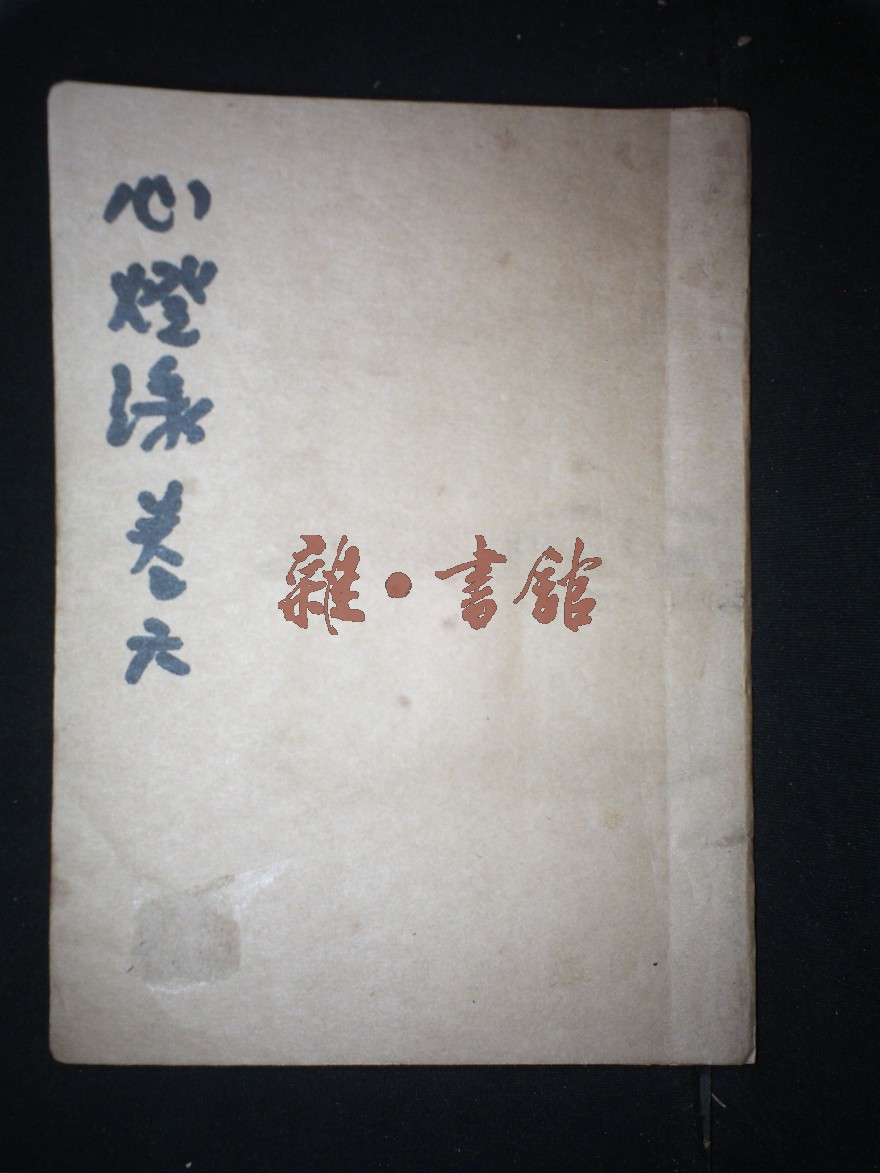 心燈錄 卷六
雜·書館